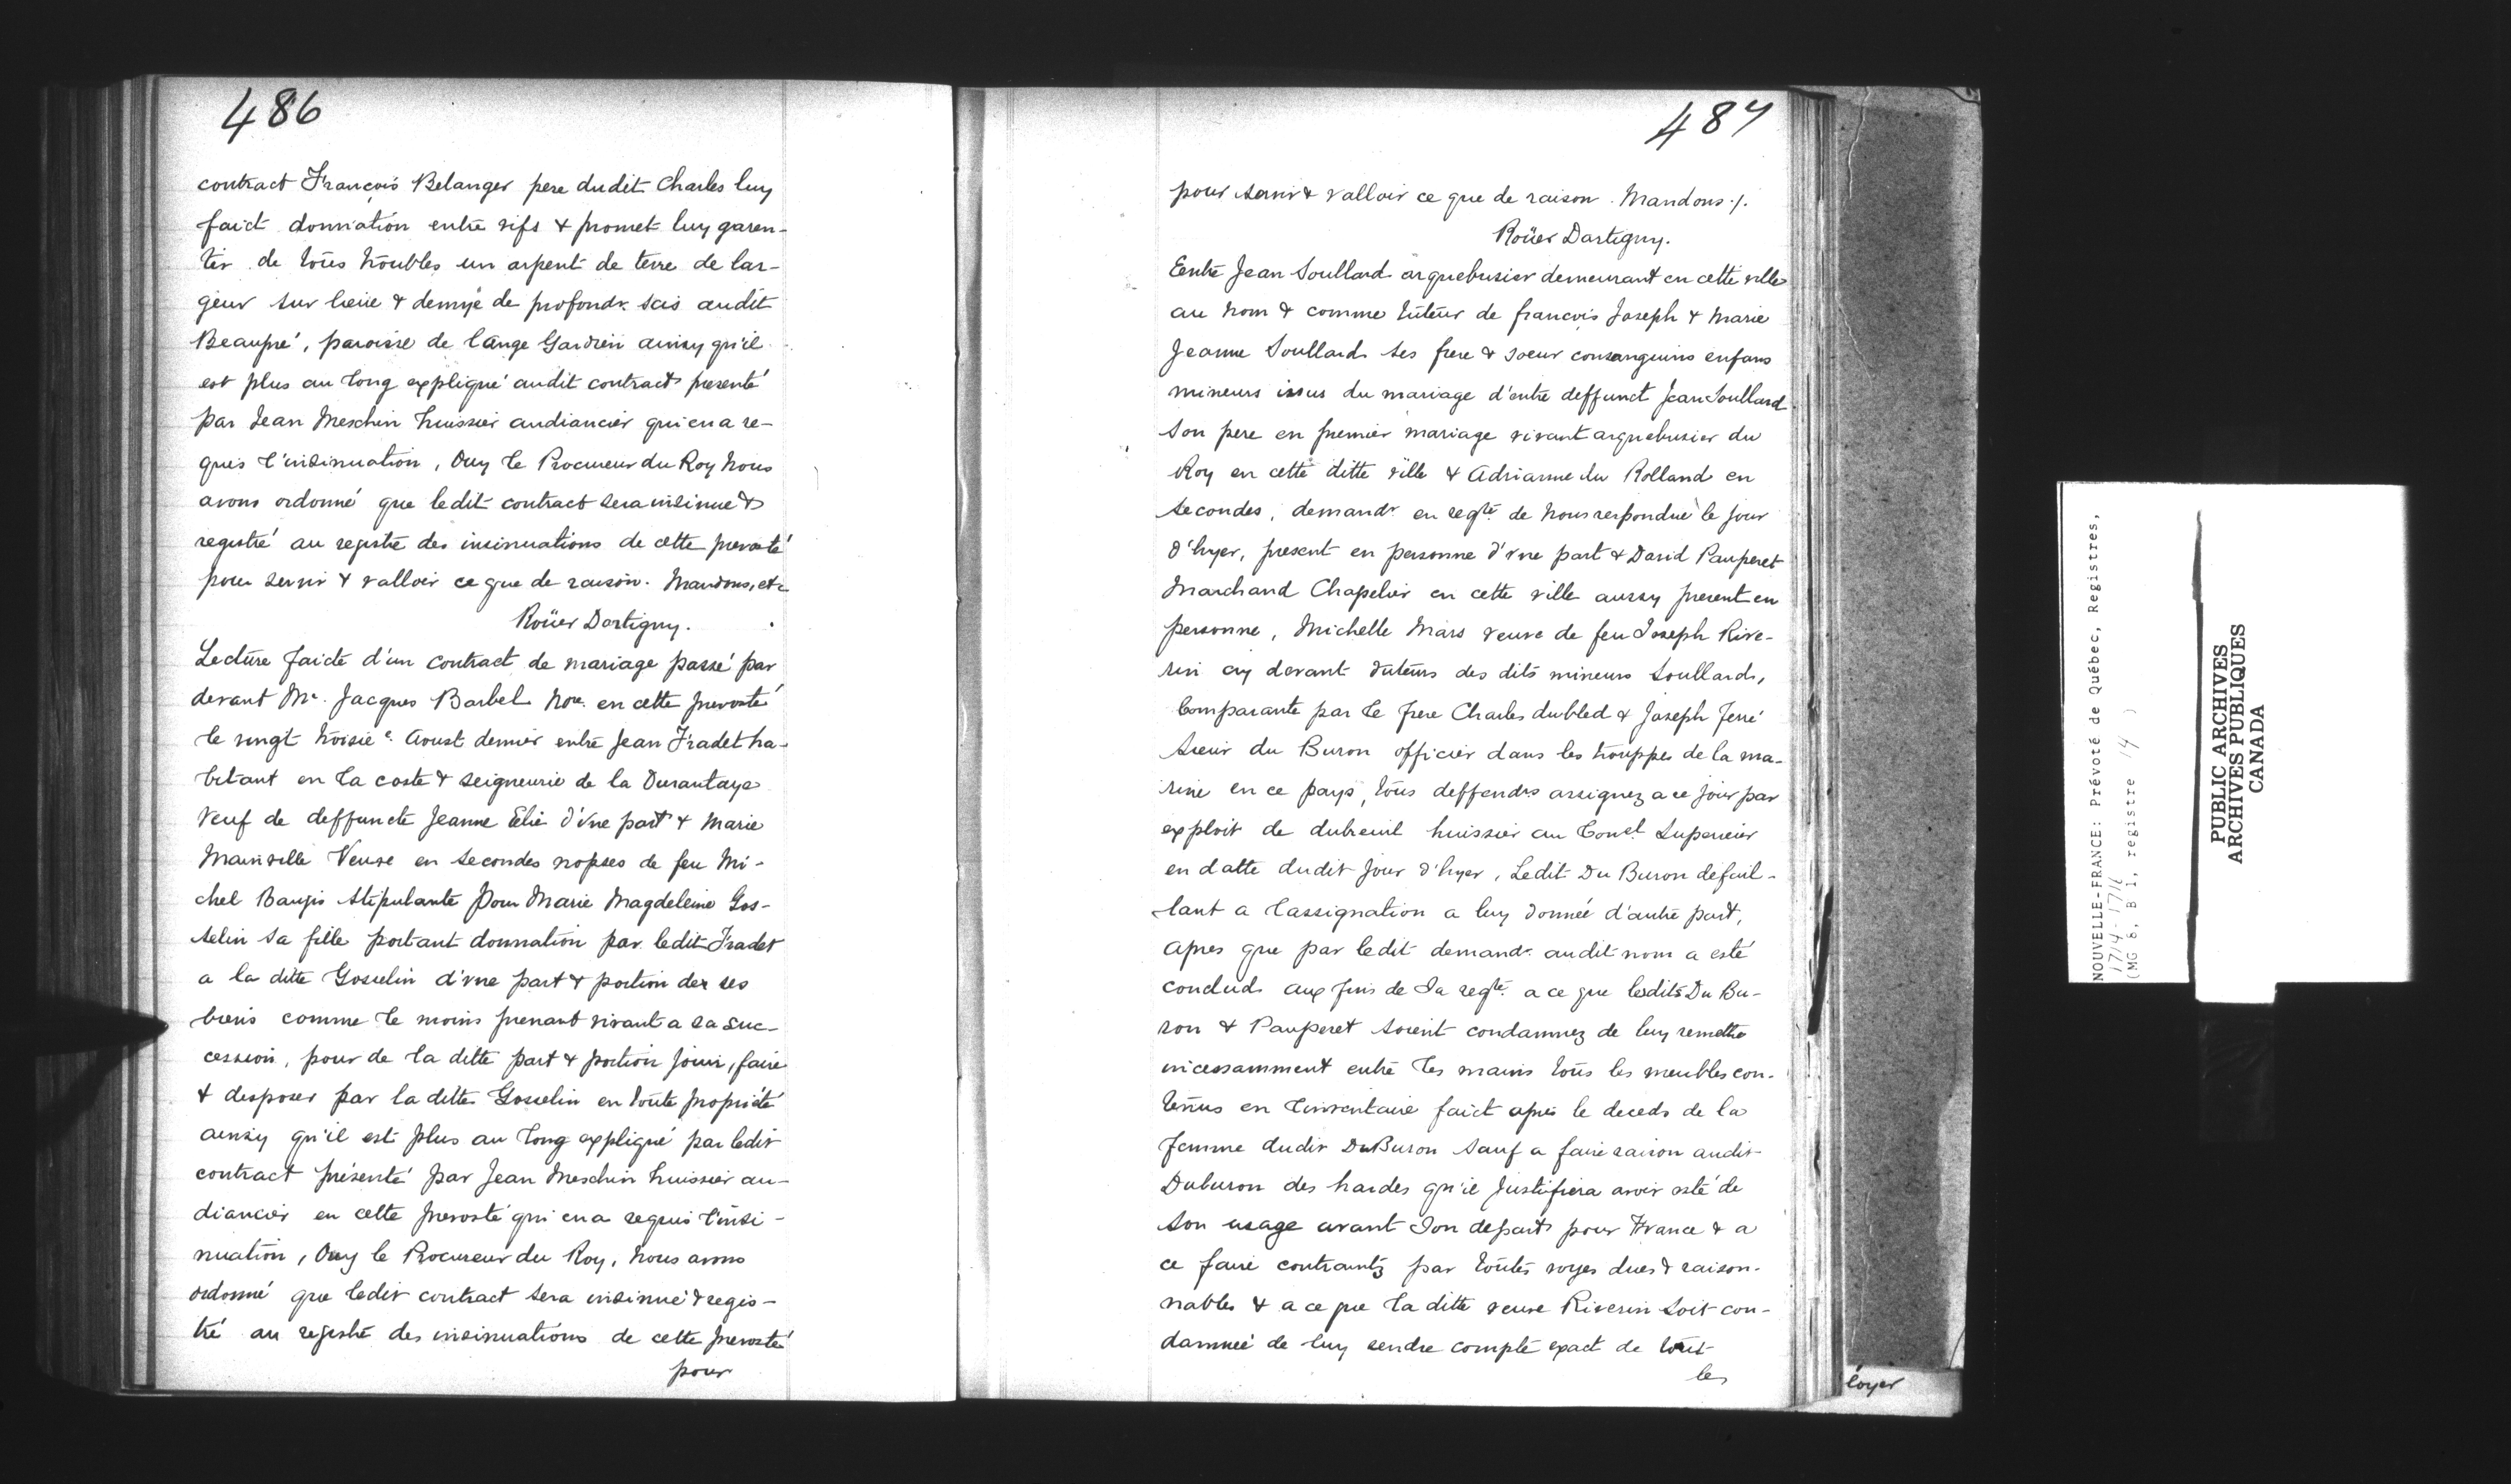 486
contract François Belanger pere dudit Charles luy
faict donnation entre vifs & promet luy garen-
tir de tous troubles un arpent de terre de lar-
geur sur lieüe & demye de profondr. scis audit
Beaupré, paroisse de l'ange Gardien ainsy qu'il
est plus au long expliqué audit contract presenté
par Jean Meschin huissier audiancier qui en a re-
quis l'insinuation, Ouy le Procureur du Roy Nous
avons ordonné que ledit contract sera insinue &
registré au registre des insinuations de cette prevosté
pour servir & valloir ce que de raison. Mandons, etc
Roüer Dartigny.
Lecture faicte d'un contract de mariage passé par
devant Me. Jacques Barbel Nore. en cette prevosté
le vingt troisie e. Aoust dernier entre Jean Fradet ha-
bitant en la coste & seigneurie de la Durantaye
veuf de deffuncte Jeanne Elie d'vne part & Marie
Mainville Veuve en secondes nopses de feu Mi-
chel Baugis stipulante pour Marie Magdeleine Gos-
selin sa fille portant donnation par ledit Fradet
a la ditte Gosselin d'vne part & portion de ses
biens comme le moins prenant vivant a sa suc-
cession, pour de la ditte part & portion jouir, faire
& desposer par la ditte Gosselin en toute proprieté
ainsy qu'il est plus au long expliqué par ledit
contract présenté par Jean Meschin huissier au-
diancier en cette prevosté qui en a requis l'insi-
nuation, Ouy le Procureur du Roy, Nous avons
ordonné que ledit contract sera insinué & regis-
tré au registre des insinuations de cette prevosté
pour
487
pour servir & valloir ce que de raison. Mandons ./.
Roüer Dartigny.
Eentre Jean Soullard arquebusier demeurant en cette ville
au nom & comme tuteur de françois Joseph & Marie
Jeanne Soullard ses frere & soeur consanguins enfans
mineurs issus du mariage d'entre deffunct Jean Soullard
son pere en premier mariage vivant arquebusier du
Roy en cette ditte ville & Adrianne du Rolland en
secondes, demandr en reqte. de Nous respondue le jour
d'hyer, present en personne d'vne part & David Pauperet
Marchand Chapelier en cette ville aussy present en
personne, Michelle Mars veuve de feu Joseph Rive-
rin cy devant tuteurs des dits mineurs Soullards,
Comparante par le frere Charles dubled & Joseph ferré
sieur du Buron officier dans les trouppes de la ma-
rine en ce pays, tous deffendrs assignez a ce jour par
exploit de dubreuil huissier au Conel Superieur
en datte dudit jour d'hyer, Ledit Du Buron defail-
lant a l'assignation a luy donnée d'autre part,
Apres que par ledit demandr. audit nom a esté
conclud aux fins de sa reqte. a ce que lesdits Du Bu-
ron & Pauperet soient condamnez de luy remettre
incessamment entre les mains tous les meubles con-
tenus en l'inventaire faict apres le deceds de la
femme dudit DuBuron sauf a faire raison audit
Duburon des hardes qu'il justifiera avoir esté de
son usage avant son depart pour France & a
ce faire contraints par toutes voyes dues & raison-
nables & a ce que la ditte veuve Riverin soit con-
damnée de luy rendre compte exact de tout
les
loyer
NOUVELLE-FRANCE: Prévoté de Québec, Registres,
1714-1716
(MG 8, B 1, registre 14 )
PUBLIC ARCHIVES
ARCHIVES PUBLIQUES
CANADA